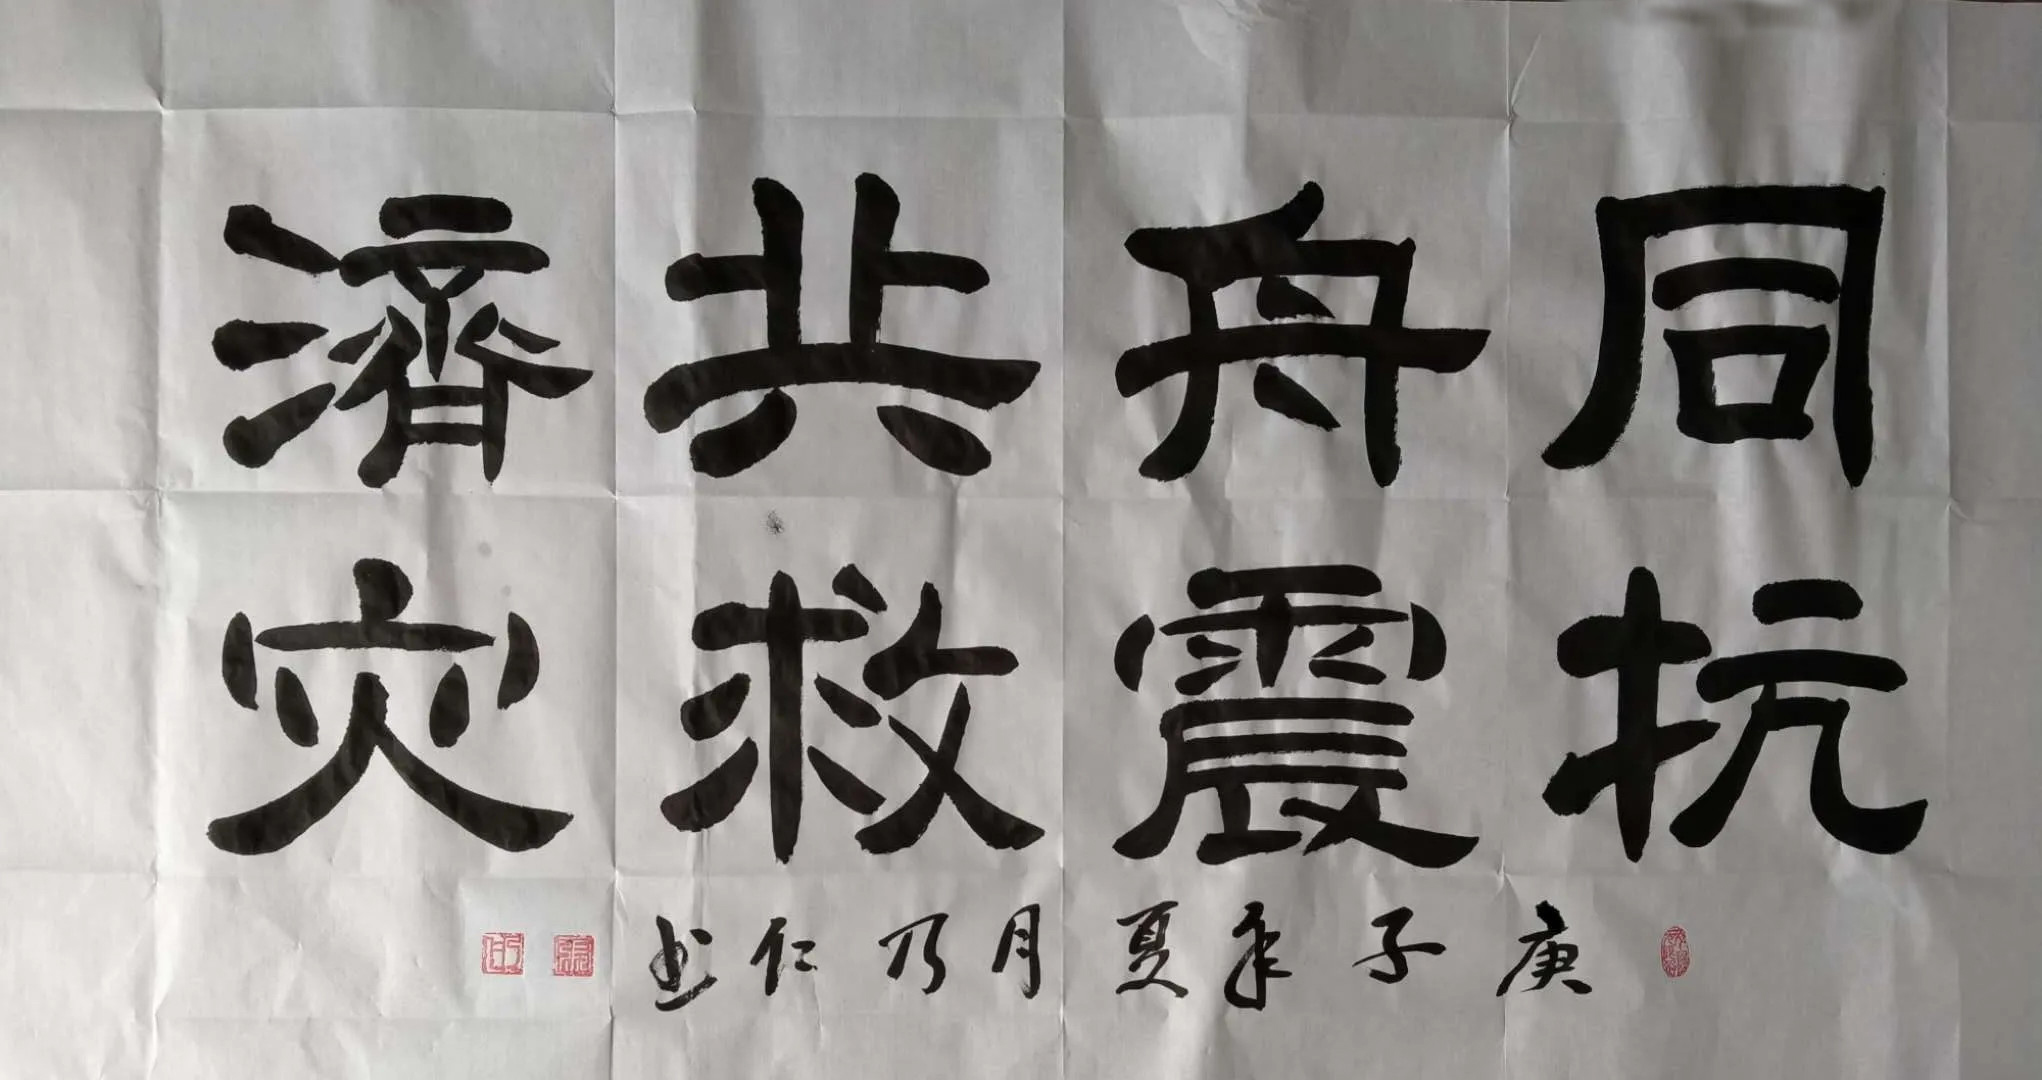 同舟共濟
抗震救灾
庚子年夏月乃仁书